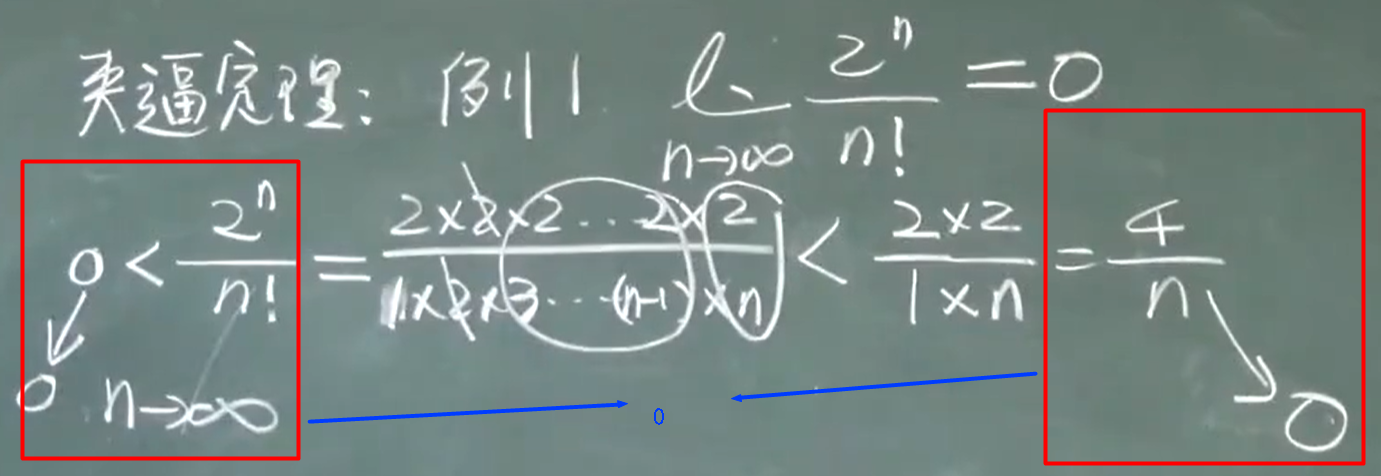 夹逼定理: 例1 lim n→∞ 2^n / n! = 0
0 < 2^n / n! = 2×2×2···2×2 / 1×2×3···(n-1)×n < 2×2 / 1×n = 4 / n
0 n→∞ 0 0